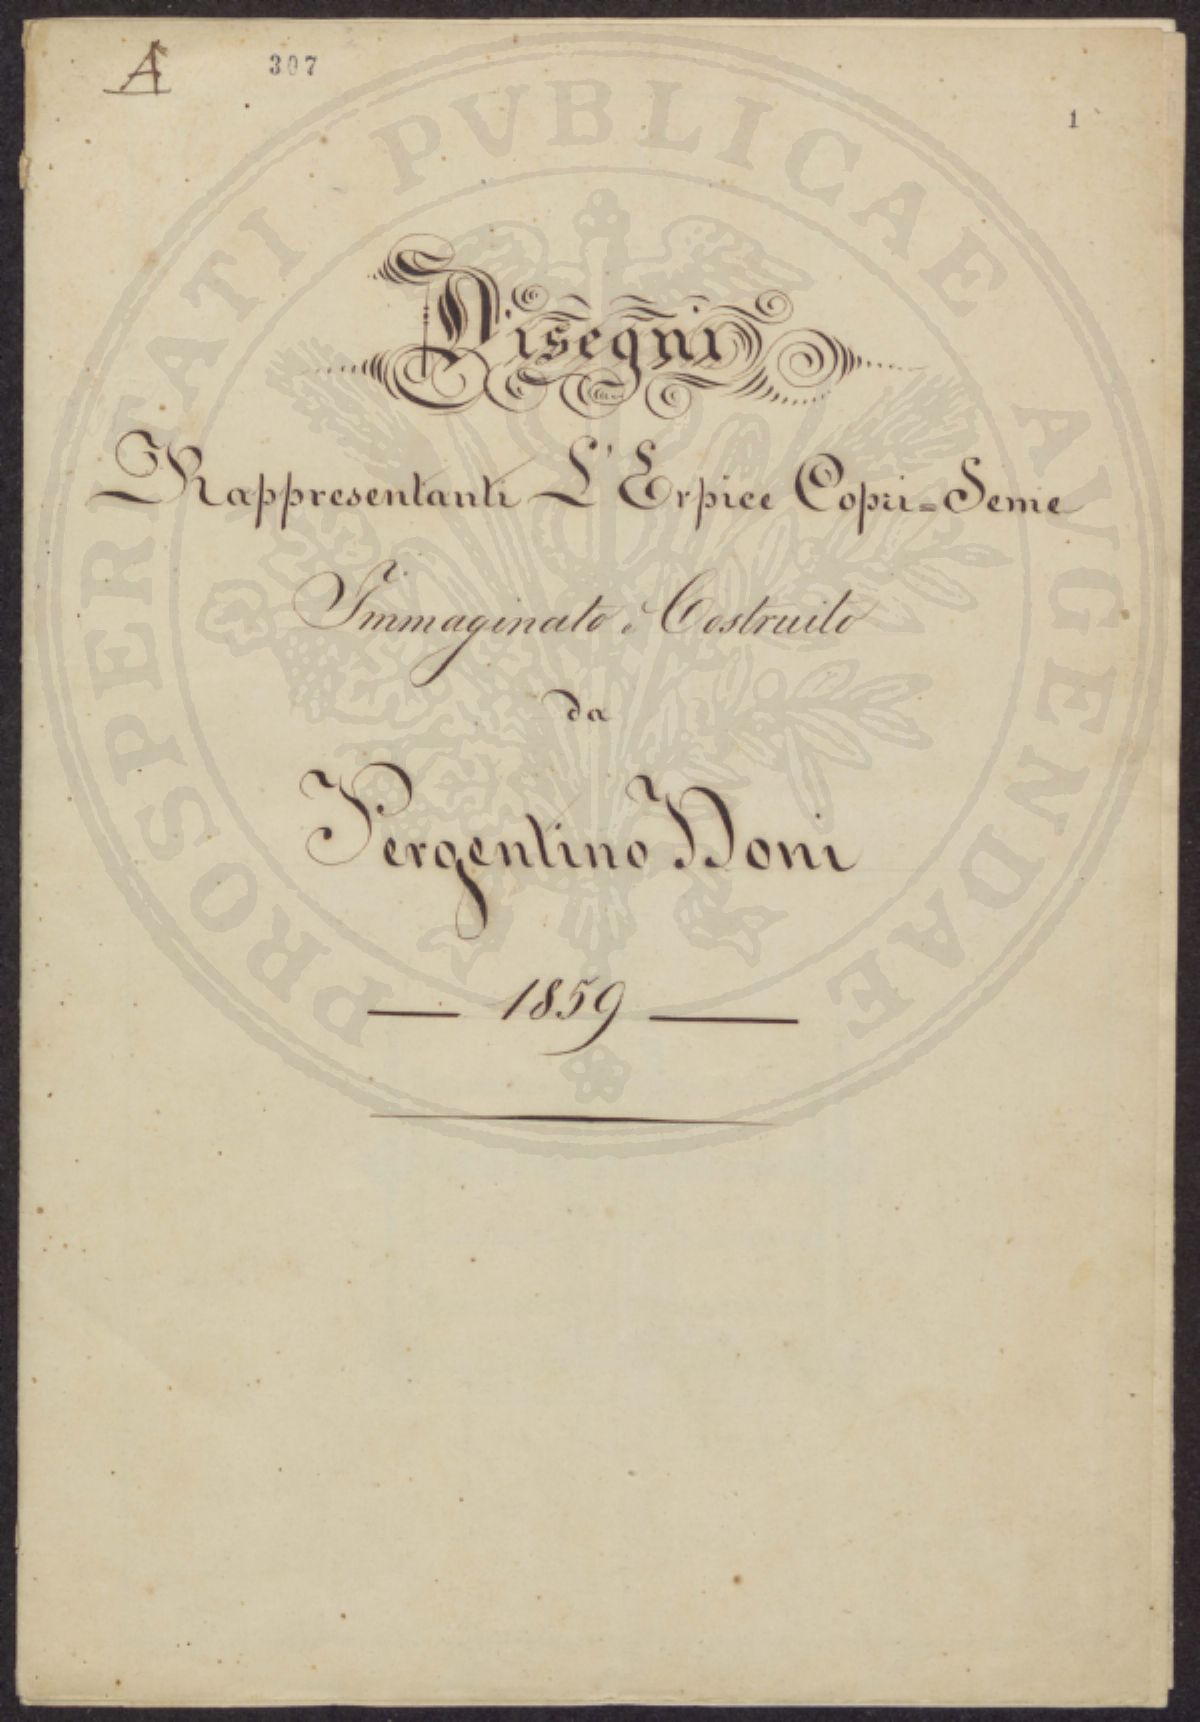 A
307
1
Disegni
Rappresentanti L'Erpice Copri=Seme
Immaginato e Costruito
da
Pergentino Doni
1859
PROSPERITATI PUBLICAE AVGENDAE